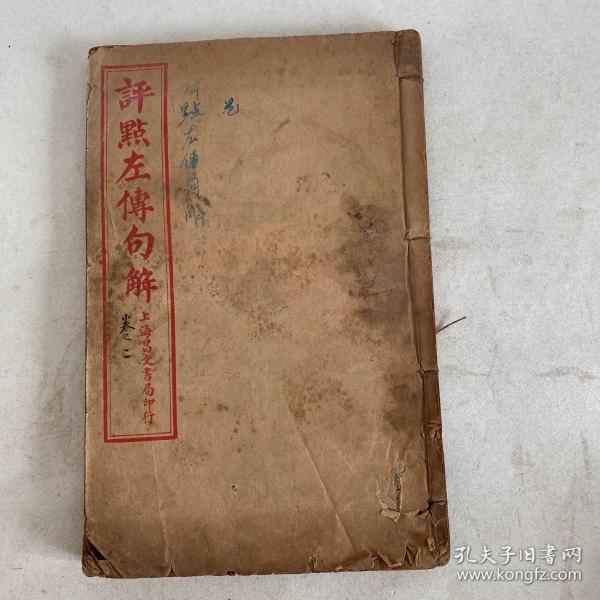 評點左傳句解
上海昌文書局印行
卷之二
評點左傳句解
孔夫子旧書网
www.kongfz.com